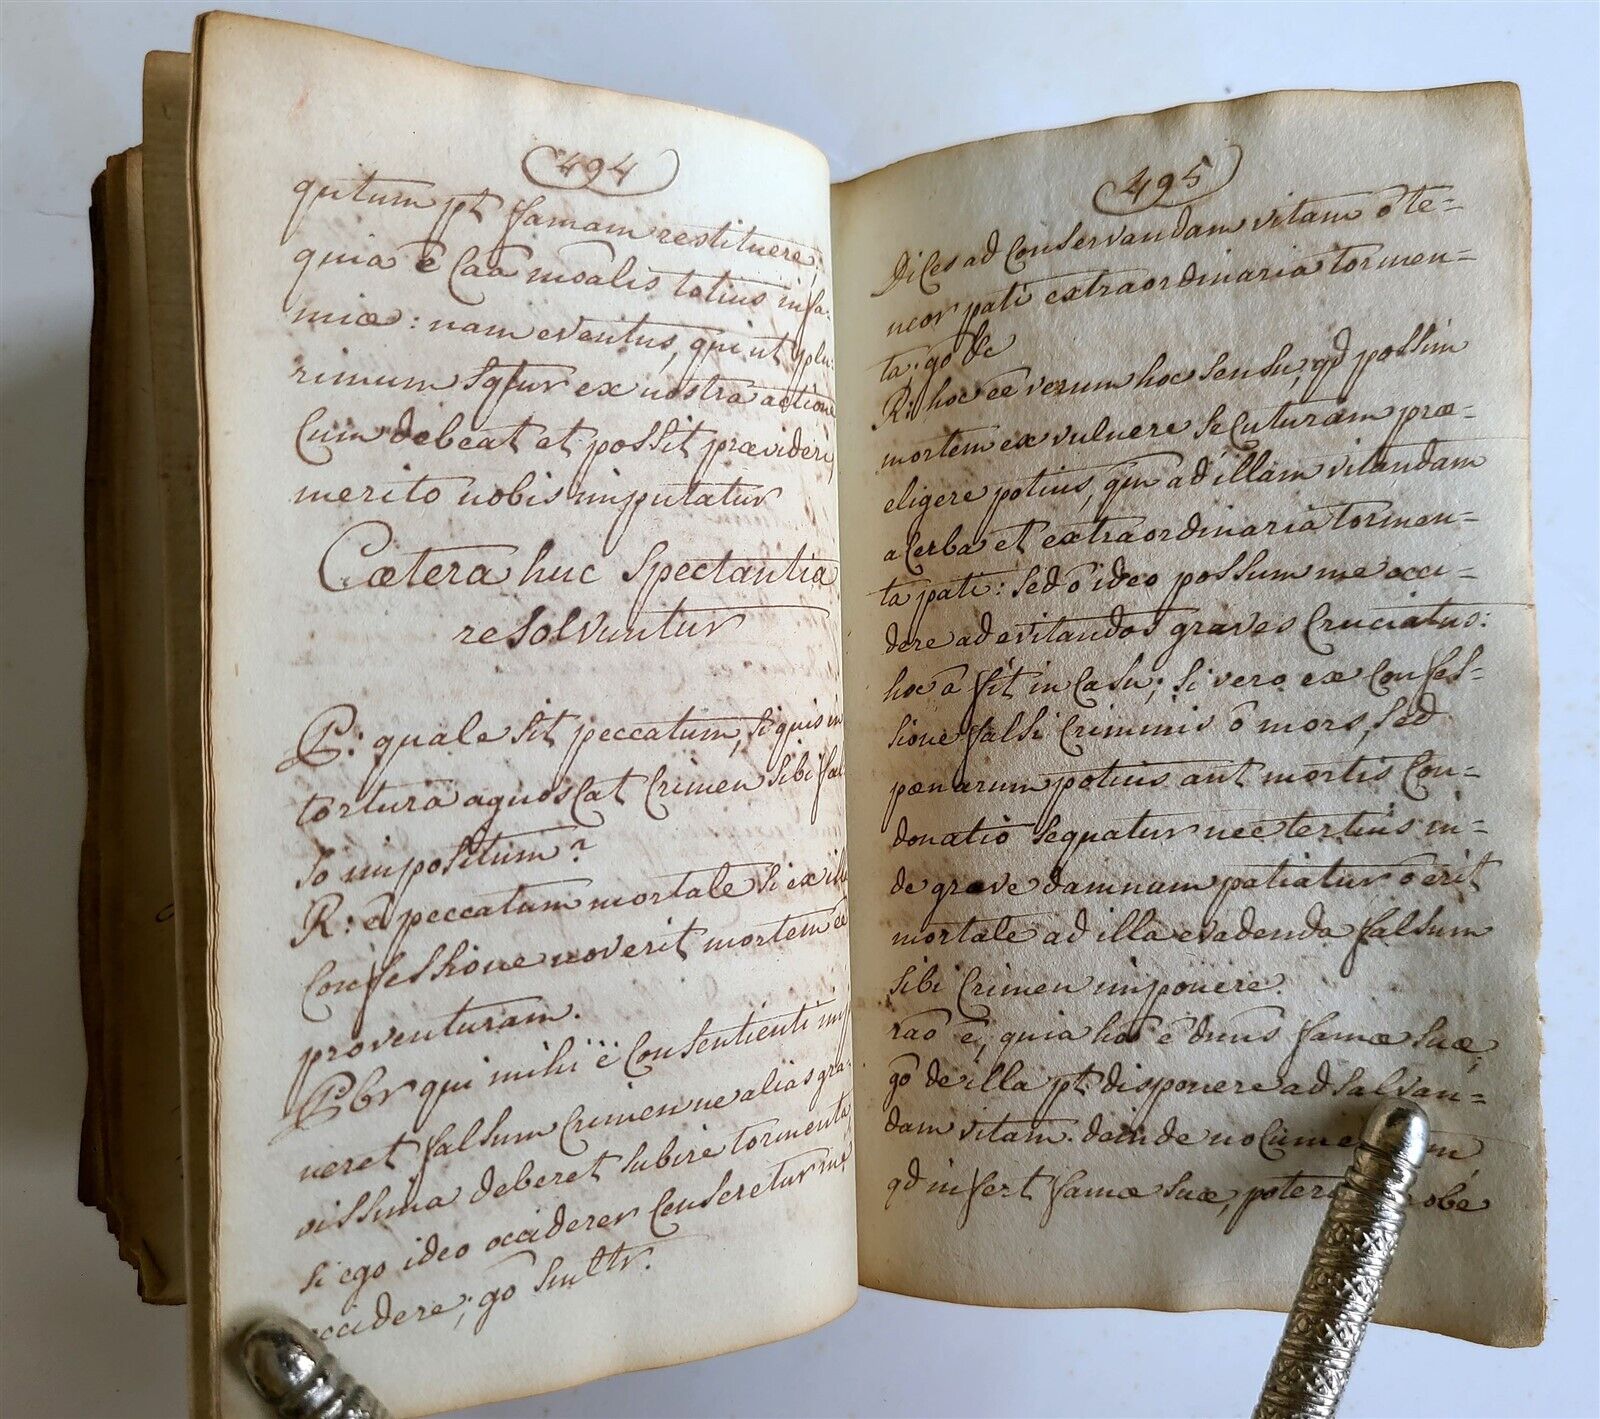 494
quitum pt famam restituere,
quia ē Caā moalis totius infa-
miæ: nam eventus, qui ut plu-
rimum sqtur ex nostra actione
Cum debeat et possit prævideri,
merito nobis imputatur
Cætera huc Spectantia
resolvuntur
P: quale sit peccatum, si quis in
tortura agnoscat Crimen sibi fal
so impositum?
R: ē peccatum mortale si ex illa
Confessione noverit mortem eē
proventuram.
Pbr qui mihi ē Consentienti imp
neret falsum Crimen ne alias gra-
vissima deberet subire tormenta,
si ego ideo occiderer Censeretur me
occidere; gō
495
Dices ad Conservandam vitam ō te-
neor pati extraordinaria tormen-
ta: gō &c
R: hoc eē verum hoc sensu, qd possim
mortem ex vulnere secuturam præ-
eligere potius, qm ad illam vitandam
acerba et extraordinaria tormen-
ta pati: sed ō ideo possum me occi-
dere ad evitandos graves Cruciatus:
hoc ā fit in Casu; si vero ex Confes-
sione falsi Criminis ō mors, sed
pœnarum potius aut mortis Con-
donatio sequatur nec tertius in-
de grave damnum patiatur ō erit
mortale ad illa evadenda falsum
sibi Crimen imponere.
raō ē, quia hoō ē dnus famæ suæ;
gō de illa pt disponere ad salvan-
dam vitam. deinde nocumen m
qd infert famæ suæ, poter obē